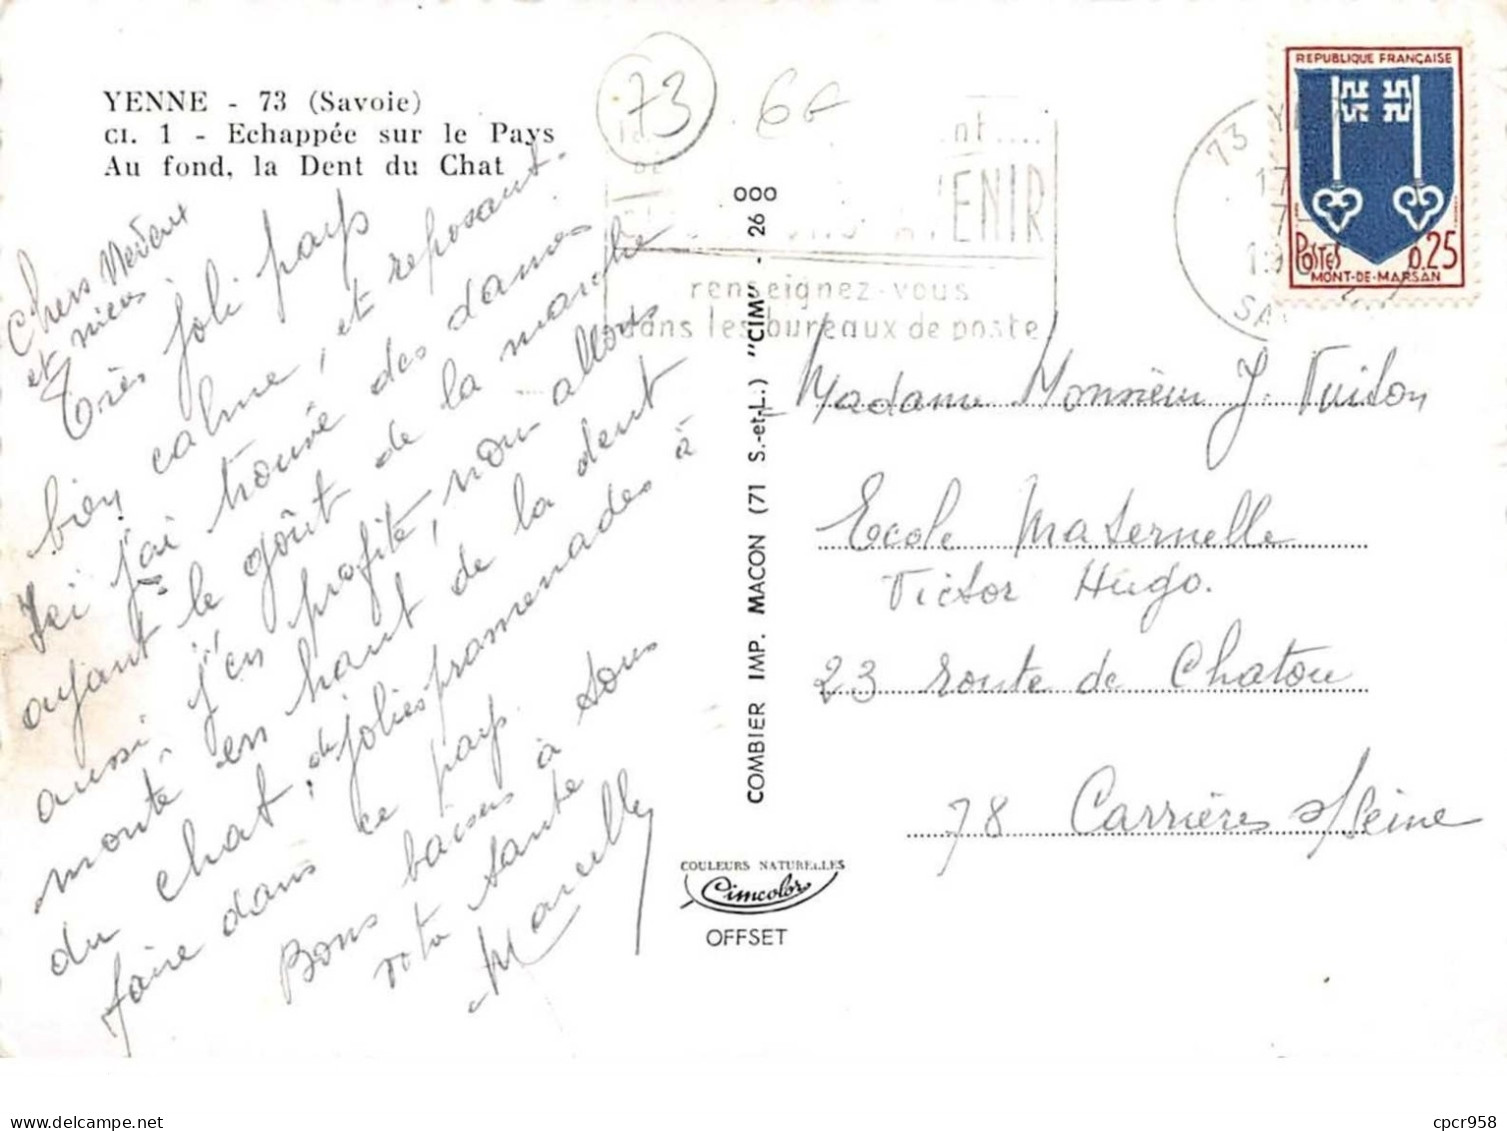 YENNE - 73 (Savoie)
CI. 1 - Echappée sur le Pays
Au fond, la Dent du Chat
73
6F
Chers Neveux
et nièce
Très joli pays
bien calme, et reposant.
Ici j'ai trouvé des dames
ayant le goût de la marche
aussi, j'en profite, nous allons
monté en haut de la dent
du chat, de jolies promenades à
faire dans ce pays.
Bons baisers à tous
santé
Marcelle
OOO
COMBIER IMP. MACON (71 S.-et-L.) "CIM" - 26
COULEURS NATURELLES
Cimcolor
OFFSET
AVENIR
renseignez-vous
dans les bureaux de poste
73 YE
17
7
SA
REPUBLIQUE FRANÇAISE
POSTES 0.25
MONT-DE-MARSAN
Madame Monsieur J. Tuiton
Ecole Maternelle
Victor Hugo.
23 route de Chatou
78 Carrières s/Seine
cpcr958